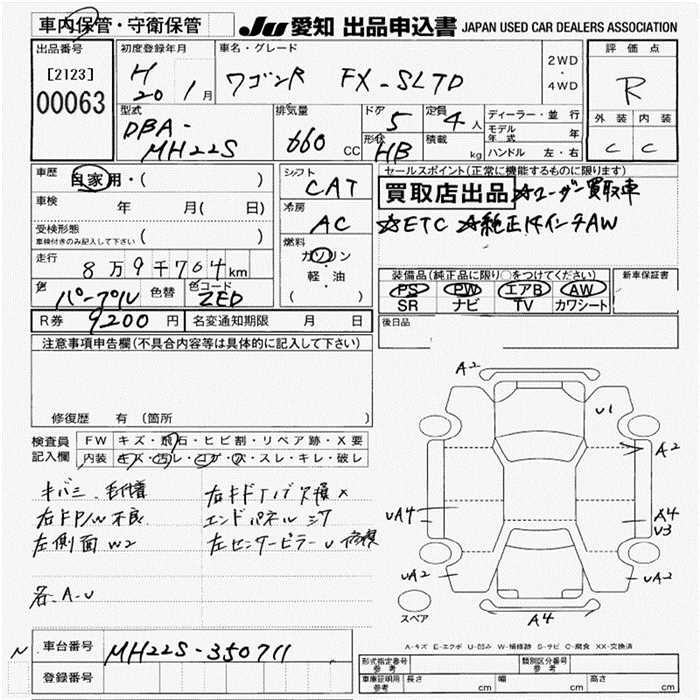 車内保管・守衛保管
JU 愛知 出品申込書 JAPAN USED CAR DEALERS ASSOCIATION
出品番号
[2123]
00063
初度登録年月
H 20 1月
車名・グレード
ワゴンR FX-SLTD
2WD
・
4WD
評価点
R
外装 内装
C C
型式
DBA-
MH22S
排気量
660 CC
ドア 5
定員 4人
形状 HB
積載 kg
ディーラー・並行
モデル年式 年
ハンドル 左・右
車歴
自家用・( )
車検 年 月( 日)
受検形態
車検付きのみ記入して下さい ( )
走行
8万9千704km
色 パープル 色替 色コード ZED
シフト
CAT
冷房
AC
燃料
ガソリン
・
軽・油
( )
セールスポイント(正常に機能するものに限ります)
買取店出品 ☆ユーザー買取車
☆ETC ☆純正14インチAW
装備品(純正品に限り○をつけてください)
PS PW エアB AW
SR ナビ TV カワシート
新車保証書
R券 9200円 名変通知期限 月 日
後日品
注意事項申告欄(不具合内容等は具体的に記入して下さい)
修復歴 有(箇所
検査員記入欄
FW キズ・飛石・ヒビ割・リペア跡・X要
内装 キズ・汚レ・コゲ・穴・スレ・キレ・破レ
キバミ、毛付着
右FP/W不良
左側面W2
各A・U
エンドパネル
左センターピラーU
A2
U1
A2
UA4
A4
U3
UA2
UA2
A4
スペア
A-キズ E-エクボ U-凹み W-補修跡 S-サビ C-腐食 XX-交換済
N
車台番号 MH22S-350711
登録番号
形式指定番号 参考
類別区分番号 参考
車庫証明用 参考 長さ cm 幅 cm 高さ cm